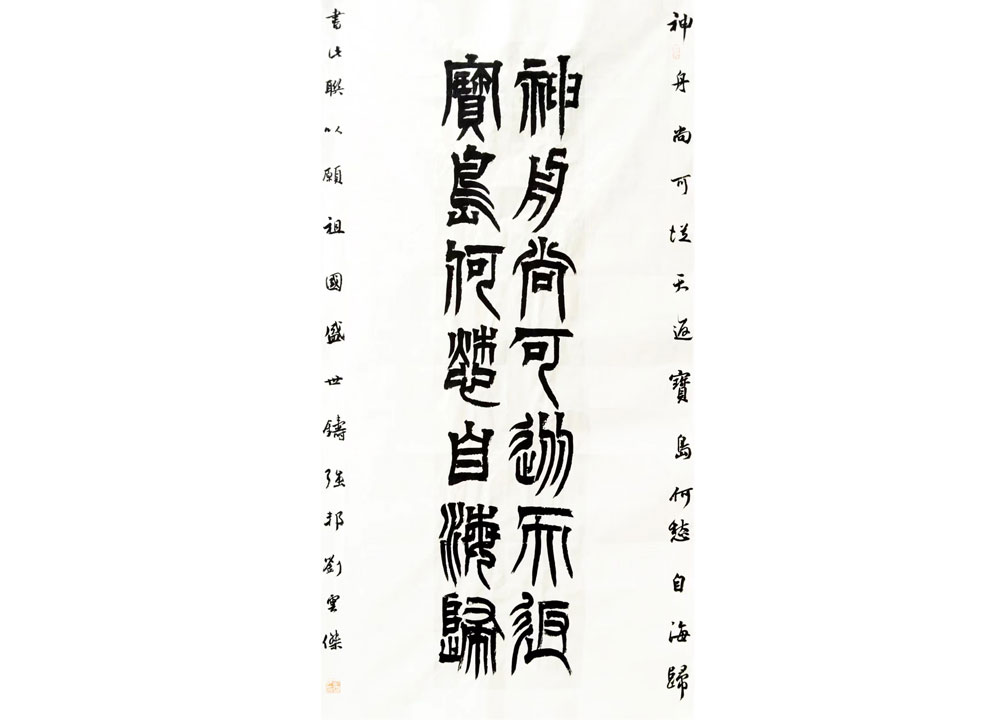 神舟尚可從天返寶島何愁自海歸
神舟尚可從天返
寶島何愁自海歸
書此聯以願祖國盛世鑄強邦劉雲傑